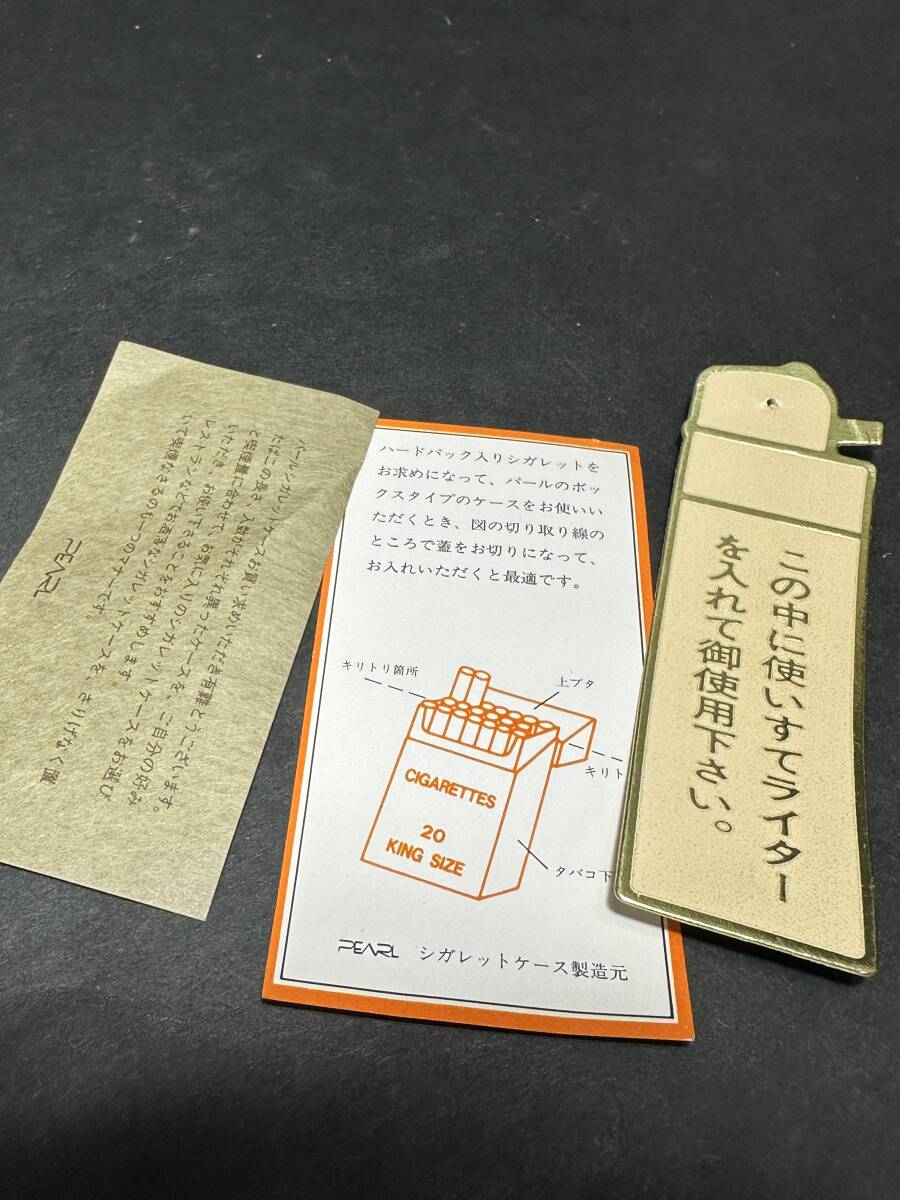 パールシガレットケースお買い求めいただき有難とうございます。
たばこの長さ、入数がそれぞれ異ったケースを、ご自分の好み
と喫煙量に合わせて、お気に入りのシガレットケースをお選び
いただき、お使い下さることをおすすめします。
レストランなどでお洒落なシガレットケースを、さりげなく置
いて喫煙なさるのも一つのマナーです。
PEARL
ハードパック入りシガレットを
お求めになって、パールのボッ
クスタイプのケースをお使いい
ただくとき、図の切り取り線の
ところで蓋をお切りになって、
お入れいただくと最適です。
キリトリ箇所
上ブタ
キリト
CIGARETTES
20
KING SIZE
タバコ下
PEARL シガレットケース製造元
この中に使いすてライター
を入れて御使用下さい。